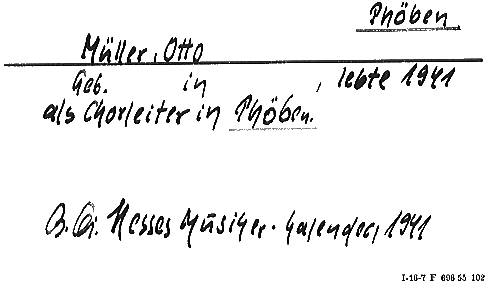 Phöben
Müller, Otto
Geb. in , lebte 1941
als Chorleiter in Phöben.
B. Qu. Hesses Musiker-Kalender, 1941
I-16-7 F 698 55 102